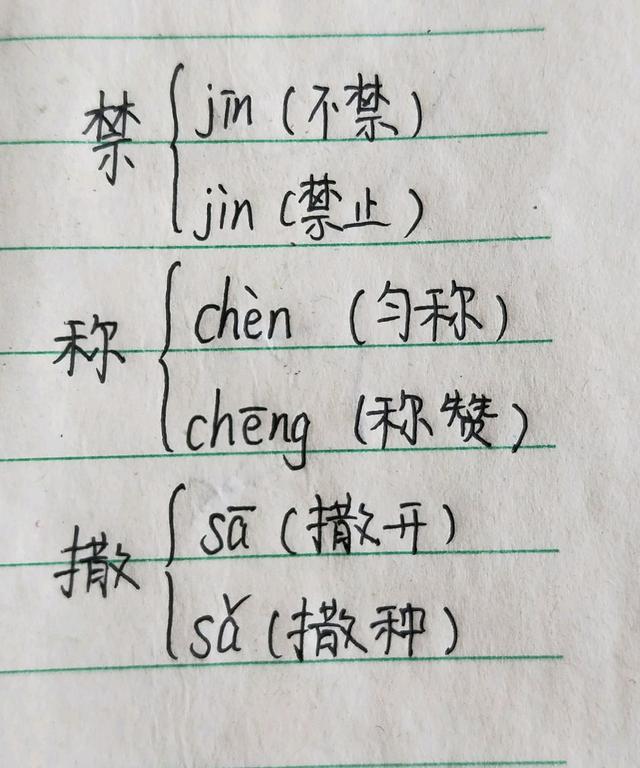 禁
jīn (不禁)
jìn (禁止)
称
chèn (匀称)
chēng (称赞)
撒
sā (撒开)
sǎ (撒种)